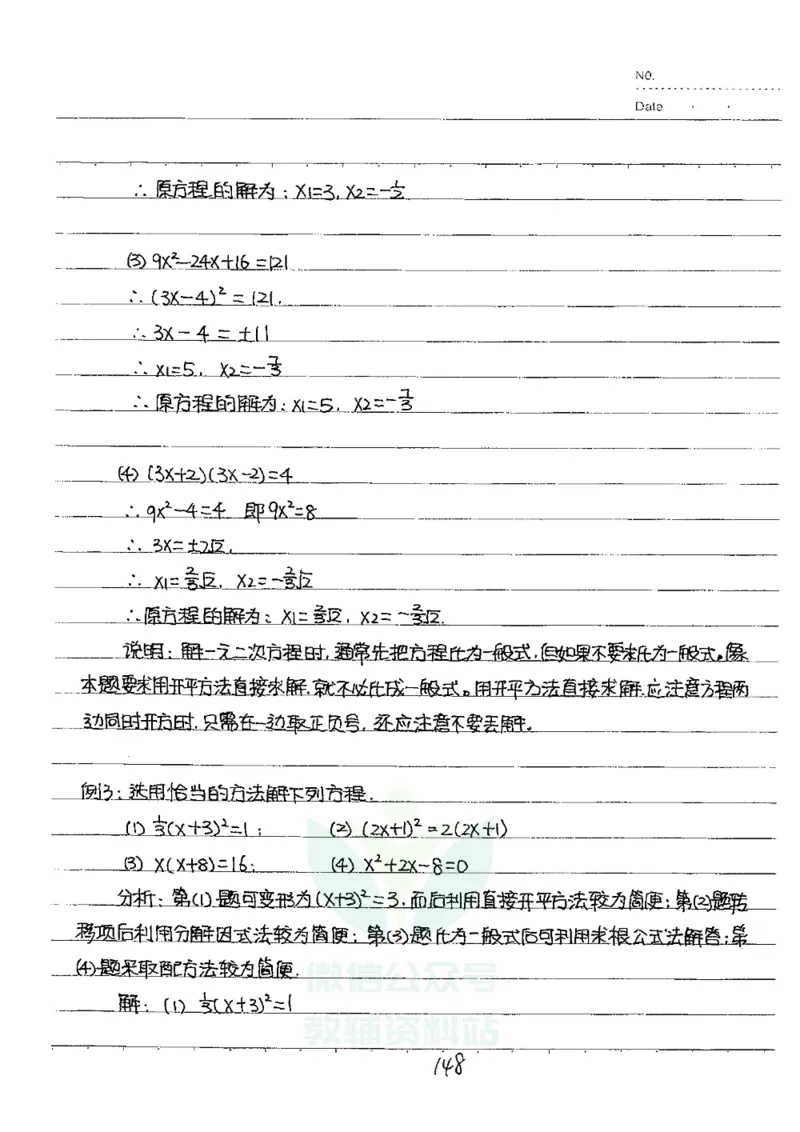 NO.
Date
∴ 原方程的解为：x1=3, x2=-1/2
(3) 9x²-24x+16=121
∴ (3x-4)²=121.
∴ 3x-4=±11
∴ x1=5, x2=-7/3
∴ 原方程的解为：x1=5, x2=-7/3
(4) (3x+2)(3x-2)=4
∴ 9x²-4=4 即9x²=8
∴ 3x=±2√2.
∴ x1=2/3√2, x2=-2/3√2
∴原方程的解为：x1=2/3√2, x2=-2/3√2.
说明：解一元二次方程时,通常先把方程化为一般式,但如果不要求化为一般式。像
本题要求用开平方法直接求解,就不必化成一般式。用开平方法直接求解,应注意方程两
边同时开方时,只需在一边取正负号,还应注意不要丢解。
例3：选用恰当的方法解下列方程.
(1) 1/3(x+3)²=1； (2) (2x+1)²=2(2x+1)
(3) x(x+8)=16; (4) x²+2x-8=0
分析：第(1)题可变形为(x+3)²=3,而后利用直接开平方法较为简便；第(2)题转
移项后利用分解因式法较为简便；第(3)题化为一般式后可利用求根公式法解答；第
(4)题采取配方法较为简便.
微信公众号
解：(1) 1/3(x+3)²=1
教辅资料站
148